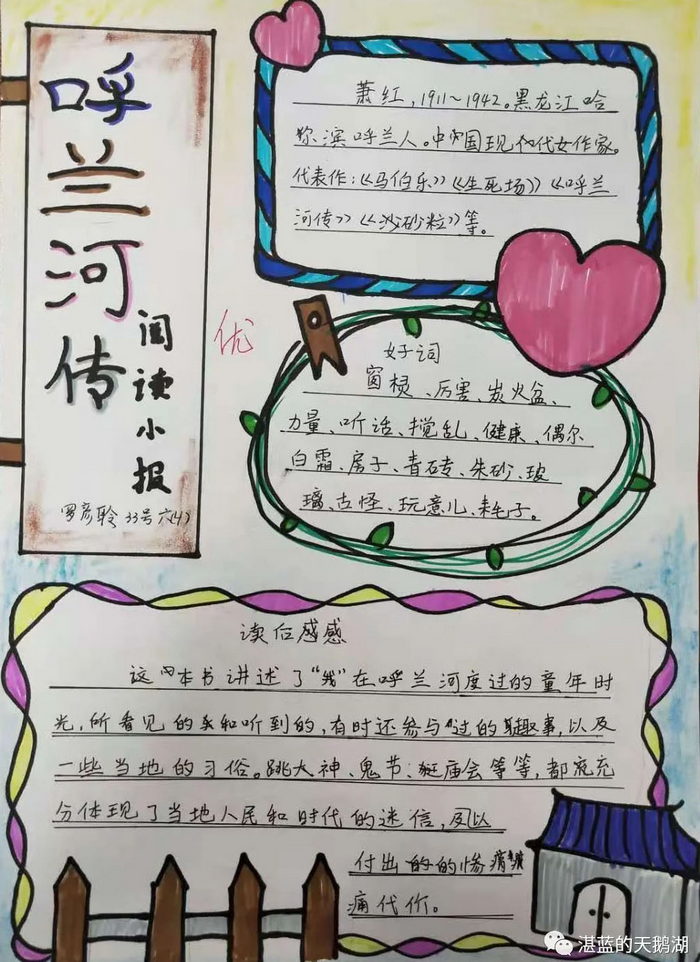 呼兰河传
阅读小报
罗彦聆 33号 六(4)
优
萧红,1911~1942。黑龙江哈
尔滨呼兰人。中国现代女作家。
代表作:《马伯乐》《生死场》《呼兰
河传》《沙砂粒》等。
好词
窗棂、厉害、炭火盆、
力量、听话、搅乱、健康、偶尔
白霜、房子、青砖、朱砂、玻
璃、古怪、玩意儿、耗子。
读后感感
这本书讲述了“我”在呼兰河度过的童年时
光,所看见的和听到的,有时还参与过的趣事,以及
一些当地的习俗。跳大神、鬼节、逛庙会等等,都充
分体现了当地人民和时代的迷信,及以
付出的的惨痛
痛代价。
湛蓝的天鹅湖